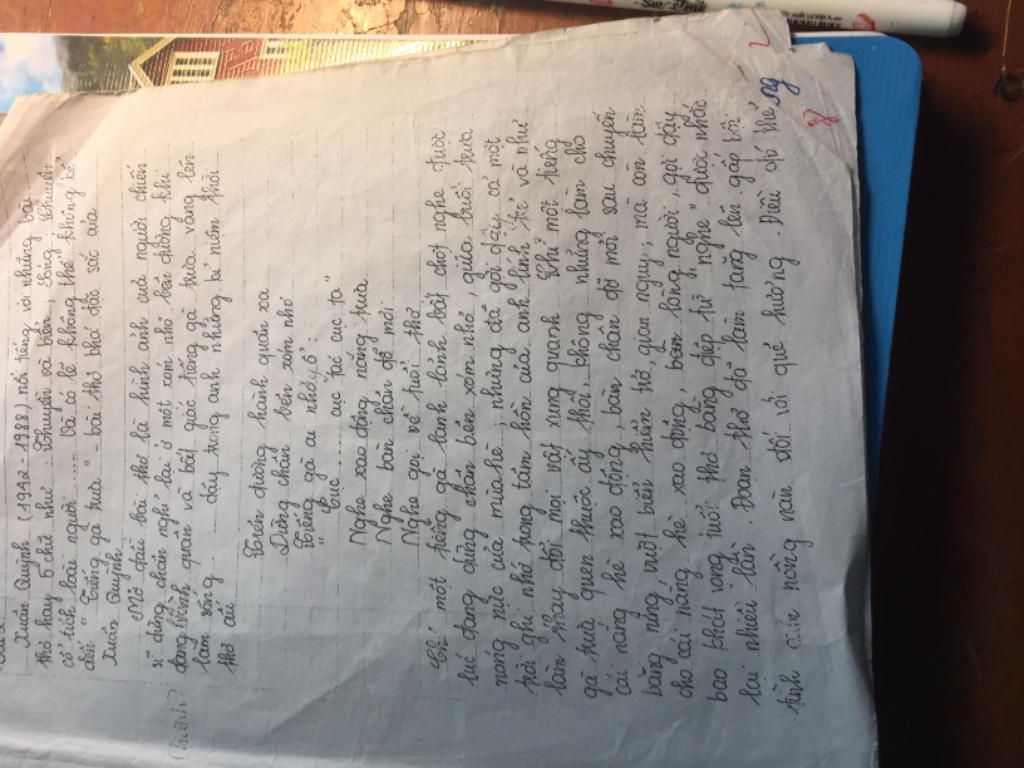 Xuân Quỳnh (1942 - 1988), nổi tiếng với những bài
thơ hay 5 chữ như: Thuyền và biển, Sóng, Chuyện
cổ tích loài người .... Và có lẽ không thể không kể
đến "Tiếng gà trưa" - bài thơ khá đặc sắc của
Xuân Quỳnh
Mở đầu bài thơ là hình ảnh của người chiến
sĩ dừng chân nghỉ lại ở một xóm nhỏ bên đường khi
đang hành quân và bất giác tiếng gà trưa vang lên
làm sống dậy trong anh những kỉ niệm thời
thơ ấu
Trên đường hành quân xa
Dừng chân bên xóm nhỏ
Tiếng gà ai nhảy ổ:
"Cục... cục tác cục ta"
Nghe xao động nắng trưa
Nghe bàn chân đỡ mỏi
Nghe gọi về tuổi thơ
Chỉ một tiếng gà lanh lảnh bất chợt nghe được
lúc đang dừng chân bên xóm nhỏ, giữa buổi trưa
nóng nực của mùa hè; nhưng đã gợi dậy cả một
trời ghi nhớ trong tâm hồn của anh lính trẻ và như
làm thay đổi mọi vật xung quanh. Chỉ một tiếng
gà trưa quen thuộc ấy thôi, không những làm cho
cái nắng hè xao động, bàn chân đỡ mỏi sau chuyến
băng rừng vượt biển hiểm trở, gian nguy; mà còn làm
cho cái nắng hè xao động, lòng người, gợi dậy
bao khát vọng tuổi thơ bằng điệp từ "nghe" được nhắc
lại nhiều lần. Đoạn thơ đó làm tăng lên gấp bội
tình cảm nồng nàn đối với quê hương. Điều gì thế